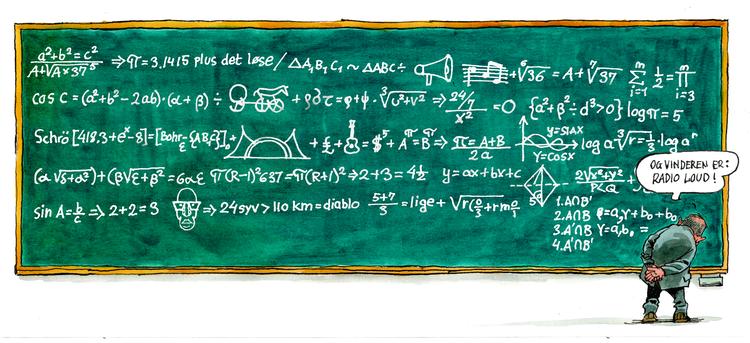 a²+b²=c² / A+√A×37⁵ ⇒ π=3.1415 plus det løse / ΔA₁B₁C₁ ~ ΔABC÷ + ⁶√36 = A+⁷√37 Σ ½ = π
cos C = (a²+b²-2ab)·(α+β) ÷ + = φ+φ · ³√U²+V² ⇒ 24/7 / X² = 0 {a²+β²÷d³>0} logπ=5
Schrö [418,3+eˣ-8]=[Bohr-{AB/ε}] + £ + = $⁵ + Aπ = Bπ ⇒ π=A+B / 2a y=sinx Y=cosx log a ³√r = ⅓·log aʳ
(α√δ+α²)+(β√ε+β²=6αε π(R-1)²637=π(R+1)²⇒2+3=4½ y=ax+bx+c 2√x²+y² / P²Q
sin A=b/c ⇒ 2+2=3 ⇒ 24syv > 110 km=diablo 5+7/3 = lige +
1. A∩B'
2. A∩B = a₀Y+b₀+b₀
3. A'∩B Y=a₁b₀ =
4. A'∩B'
OG VINDEREN ER:
RADIO LOUD!